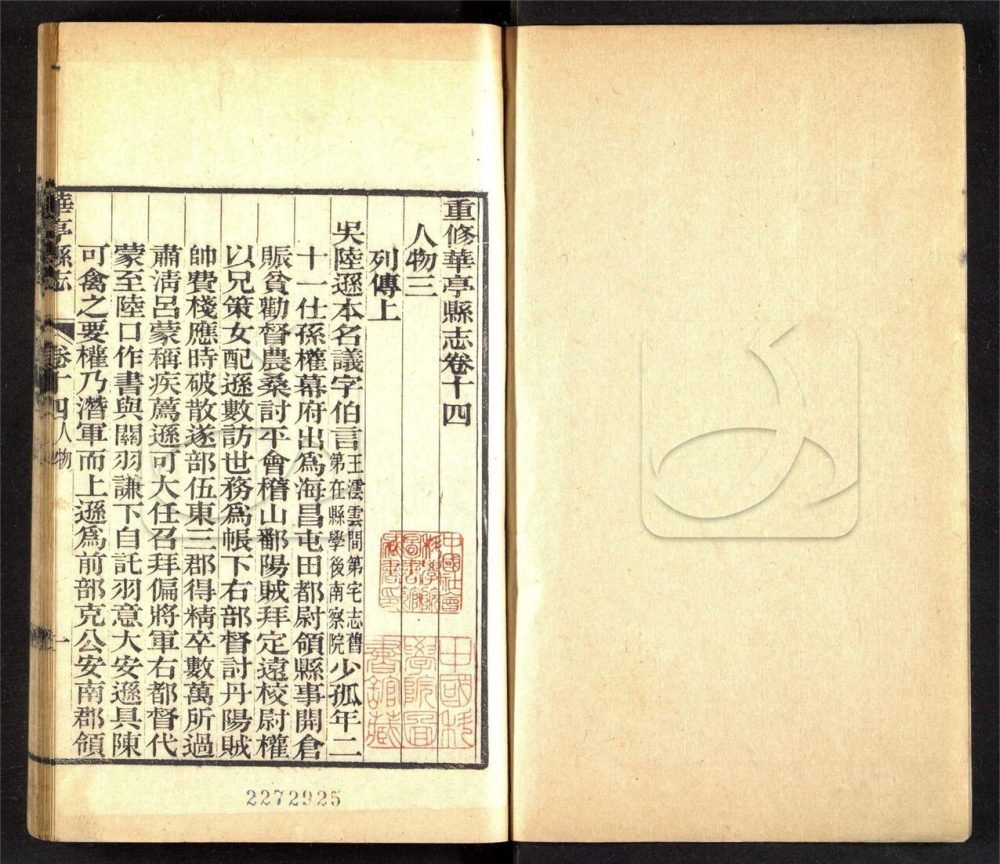 重修華亭縣志卷十四
人物三
列傳上
吳陸遜本名議字伯言王澐雲間第宅志舊第在縣學後南察院少孤年二
十一仕孫權幕府出爲海昌屯田都尉領縣事開倉
賑貧勸督農桑討平會稽山鄱陽賊拜定遠校尉權
以兄策女配遜數訪世務爲帳下右部督討丹陽賊
帥費棧應時破散遂部伍東三郡得精卒數萬所過
肅清呂蒙稱疾薦遜可大任召拜偏將軍右都督代
蒙至陸口作書與關羽謙下自託羽意大安遜具陳
可禽之要權乃潛軍而上遜爲前部克公安南郡領
華亭縣志 卷十四 人物 一
中國社會科學院圖書館藏書印
中國科學院圖書館藏
2272925